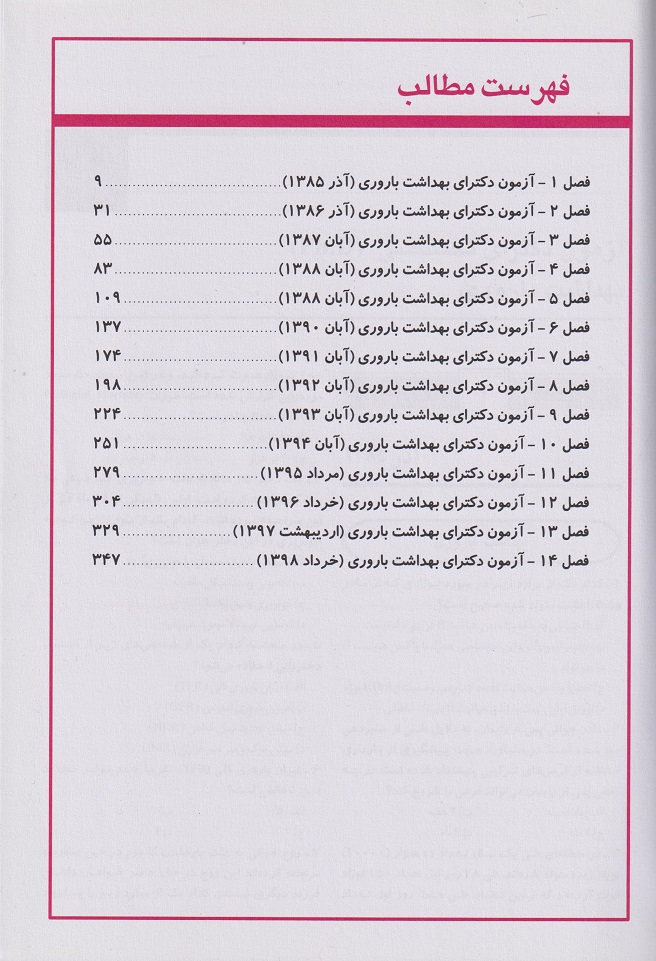 فهرست مطالب
فصل ۱ - آزمون دکترای بهداشت باروری (آذر ۱۳۸۵) ۹
فصل ۲ - آزمون دکترای بهداشت باروری (آذر ۱۳۸۶) ۳۱
فصل ۳ - آزمون دکترای بهداشت باروری (آبان ۱۳۸۷) ۵۵
فصل ۴ - آزمون دکترای بهداشت باروری (آبان ۱۳۸۸) ۸۳
فصل ۵ - آزمون دکترای بهداشت باروری (آبان ۱۳۸۸) ۱۰۹
فصل ۶ - آزمون دکترای بهداشت باروری (آبان ۱۳۹۰) ۱۳۷
فصل ۷ - آزمون دکترای بهداشت باروری (آبان ۱۳۹۱) ۱۷۴
فصل ۸ - آزمون دکترای بهداشت باروری (آبان ۱۳۹۲) ۱۹۸
فصل ۹ - آزمون دکترای بهداشت باروری (آبان ۱۳۹۳) ۲۲۴
فصل ۱۰ - آزمون دکترای بهداشت باروری (آبان ۱۳۹۴) ۲۵۱
فصل ۱۱ - آزمون دکترای بهداشت باروری (مرداد ۱۳۹۵) ۲۷۹
فصل ۱۲ - آزمون دکترای بهداشت باروری (خرداد ۱۳۹۶) ۳۰۴
فصل ۱۳ - آزمون دکترای بهداشت باروری (اردیبهشت ۱۳۹۷) ۳۲۹
فصل ۱۴ - آزمون دکترای بهداشت باروری (خرداد ۱۳۹۸) ۳۴۷